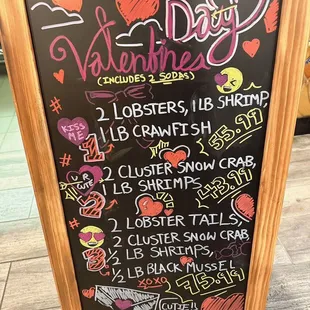 Valentines Day
(INCLUDES 2 SODAS)
KISS ME
1
2 LOBSTERS, 1 LB SHRIMP,
1 LB CRAWFISH
55.99
U R CUTE
2
2 CLUSTER SNOW CRAB,
1 LB SHRIMPS
43.99
3
2 LOBSTER TAILS,
2 CLUSTER SNOW CRAB,
½ LB SHRIMPS,
½ LB BLACK MUSSEL
XOXO
75.99
CUTIE